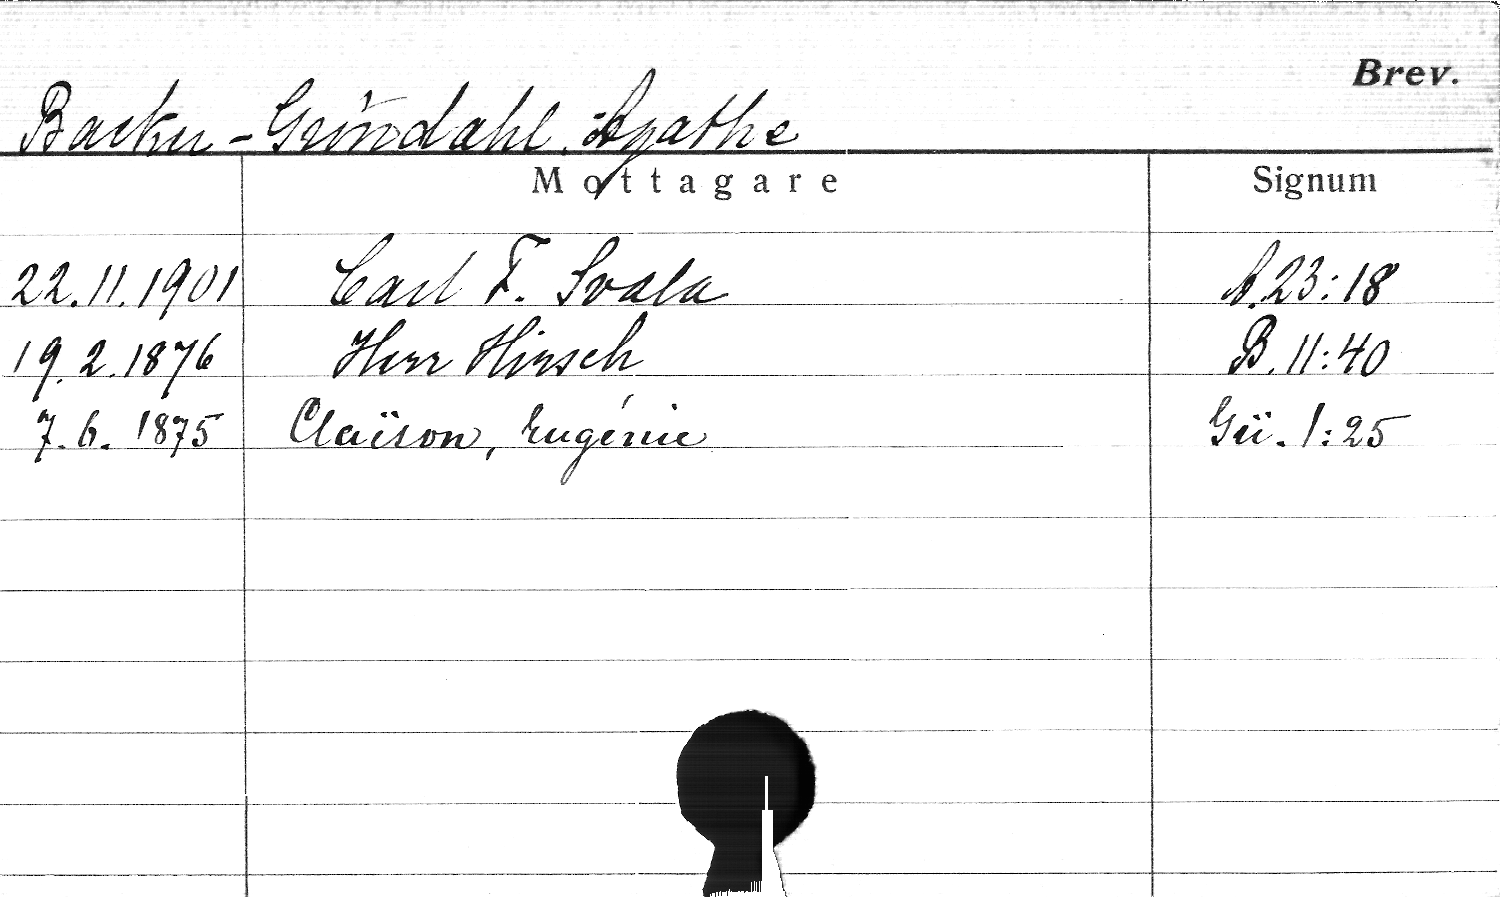 Brev.
Backer-Gröndahl, Agathe
Mottagare Signum
22.11.1901 Carl F. Svala A.23:18
19.2.1876 Herr Hirsch B.11:40
7.6.1875 Claëson, Eugénie Gü.1:25